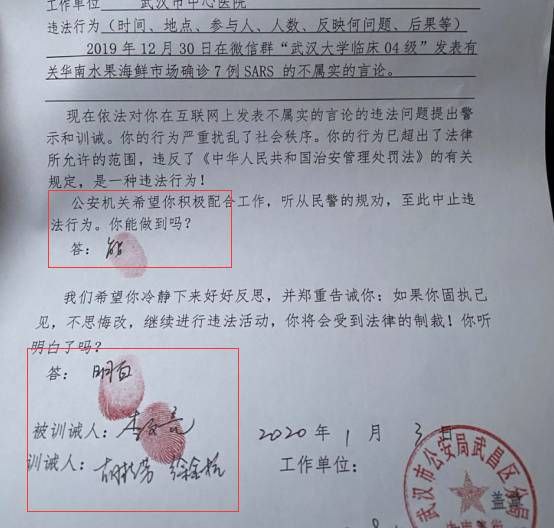 工作单位 武汉市中心医院
违法行为（时间、地点、参与人、人数、反映何问题、后果等）
2019年12月30日在微信群“武汉大学临床04级”发表有
关华南水果海鲜市场确诊7例SARS的不属实的言论。
现在依法对你在互联网上发表不属实的言论的违法问题提出警
示和训诫。你的行为严重扰乱了社会秩序。你的行为已超出了法律
所允许的范围，违反了《中华人民共和国治安管理处罚法》的有关
规定，是一种违法行为！
公安机关希望你积极配合工作，听从民警的规劝，至此中止违
法行为。你能做到吗？
答：能
我们希望你冷静下来好好反思，并郑重告诫你：如果你固执己
见，不思悔改，继续进行违法活动，你将会受到法律的制裁！你听
明白了吗？
答：明白
被训诫人：李文亮 2020年1月3日
训诫人： 工作单位：
武汉市公安局武昌区分局
盖章